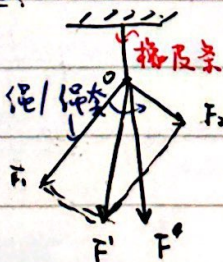 橡皮条
O
绳/绳套
F₁
F₂
F'
F"